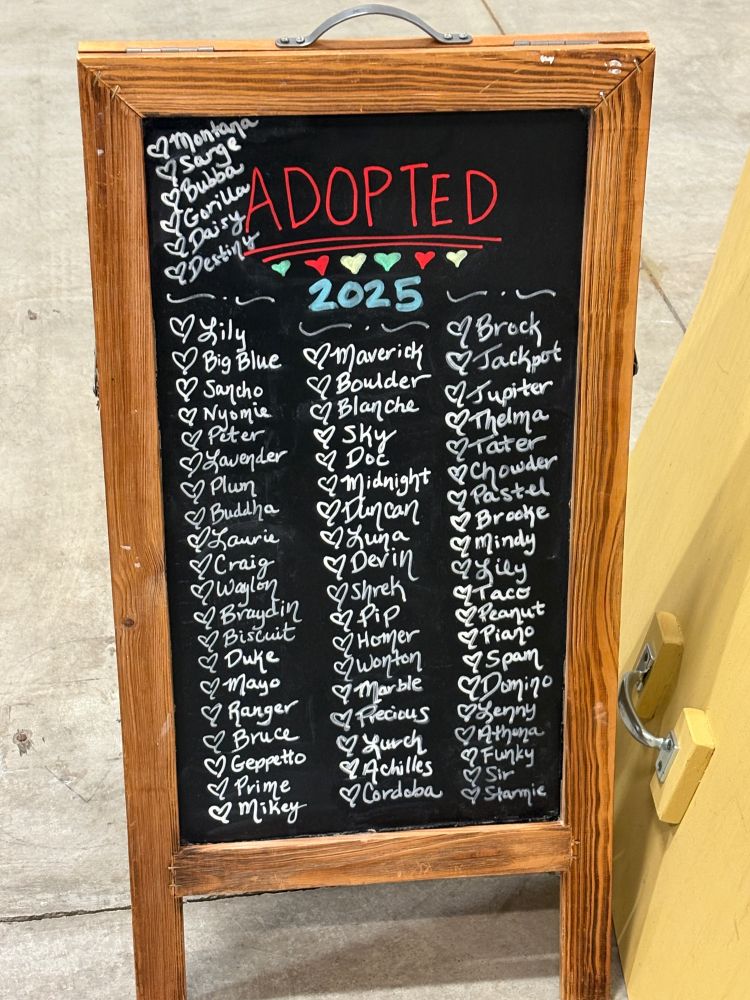 Montana
Sarge
Bubba
Gorilla
Daisy
Destiny
ADOPTED
2025
Lily
Big Blue
Sancho
Nyomie
Peter
Lavender
Plum
Buddha
Laurie
Craig
Waylon
Braydin
Biscuit
Duke
Mayo
Ranger
Bruce
Geppetto
Prime
Mikey
Maverick
Boulder
Blanche
Sky
Doc
Midnight
Duncan
Luna
Devin
Shrek
Pip
Homer
Wonton
Marble
Precious
Lurch
Achilles
Cordoba
Brock
Jackpot
Jupiter
Thelma
Tater
Chowder
Pastel
Brooke
Mindy
Lily
Taco
Peanut
Piano
Spam
Domino
Lenny
Athena
Funky
Sir
Starmie